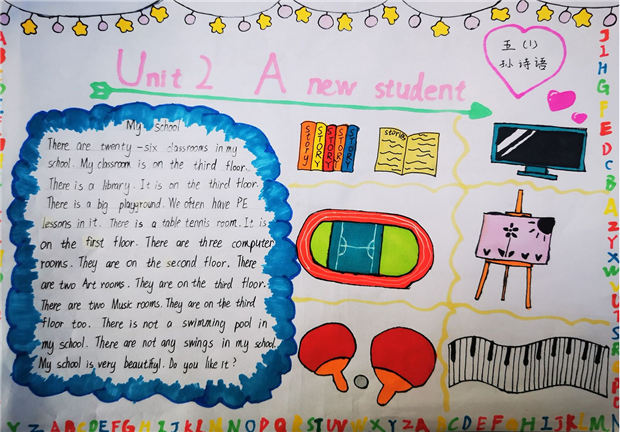 五（1）
孙诗语
Unit 2 A new student
My school
There are twenty-six classrooms in my
school. My classroom is on the third floor.
There is a library. It is on the third floor.
There is a big playground. We often have PE
lessons in it. There is a table tennis room. It is
on the first floor. There are three computer
rooms. They are on the second floor. There
are two Art rooms. They are on the third floor.
There are two Music rooms. They are on the third
floor too. There is not a swimming pool in
my school. There are not any swings in my school.
My school is very beautiful. Do you like it?
Story
STORY
STORY
STORY
STORY
stories
A
B
C
J
I
H
G
F
E
D
C
B
A
Z
Y
X
W
V
U
T
S
Y Z A B C D E F G H I J K L M N O P Q R S T U V W X Y Z A B C D E F G H I J K L M N